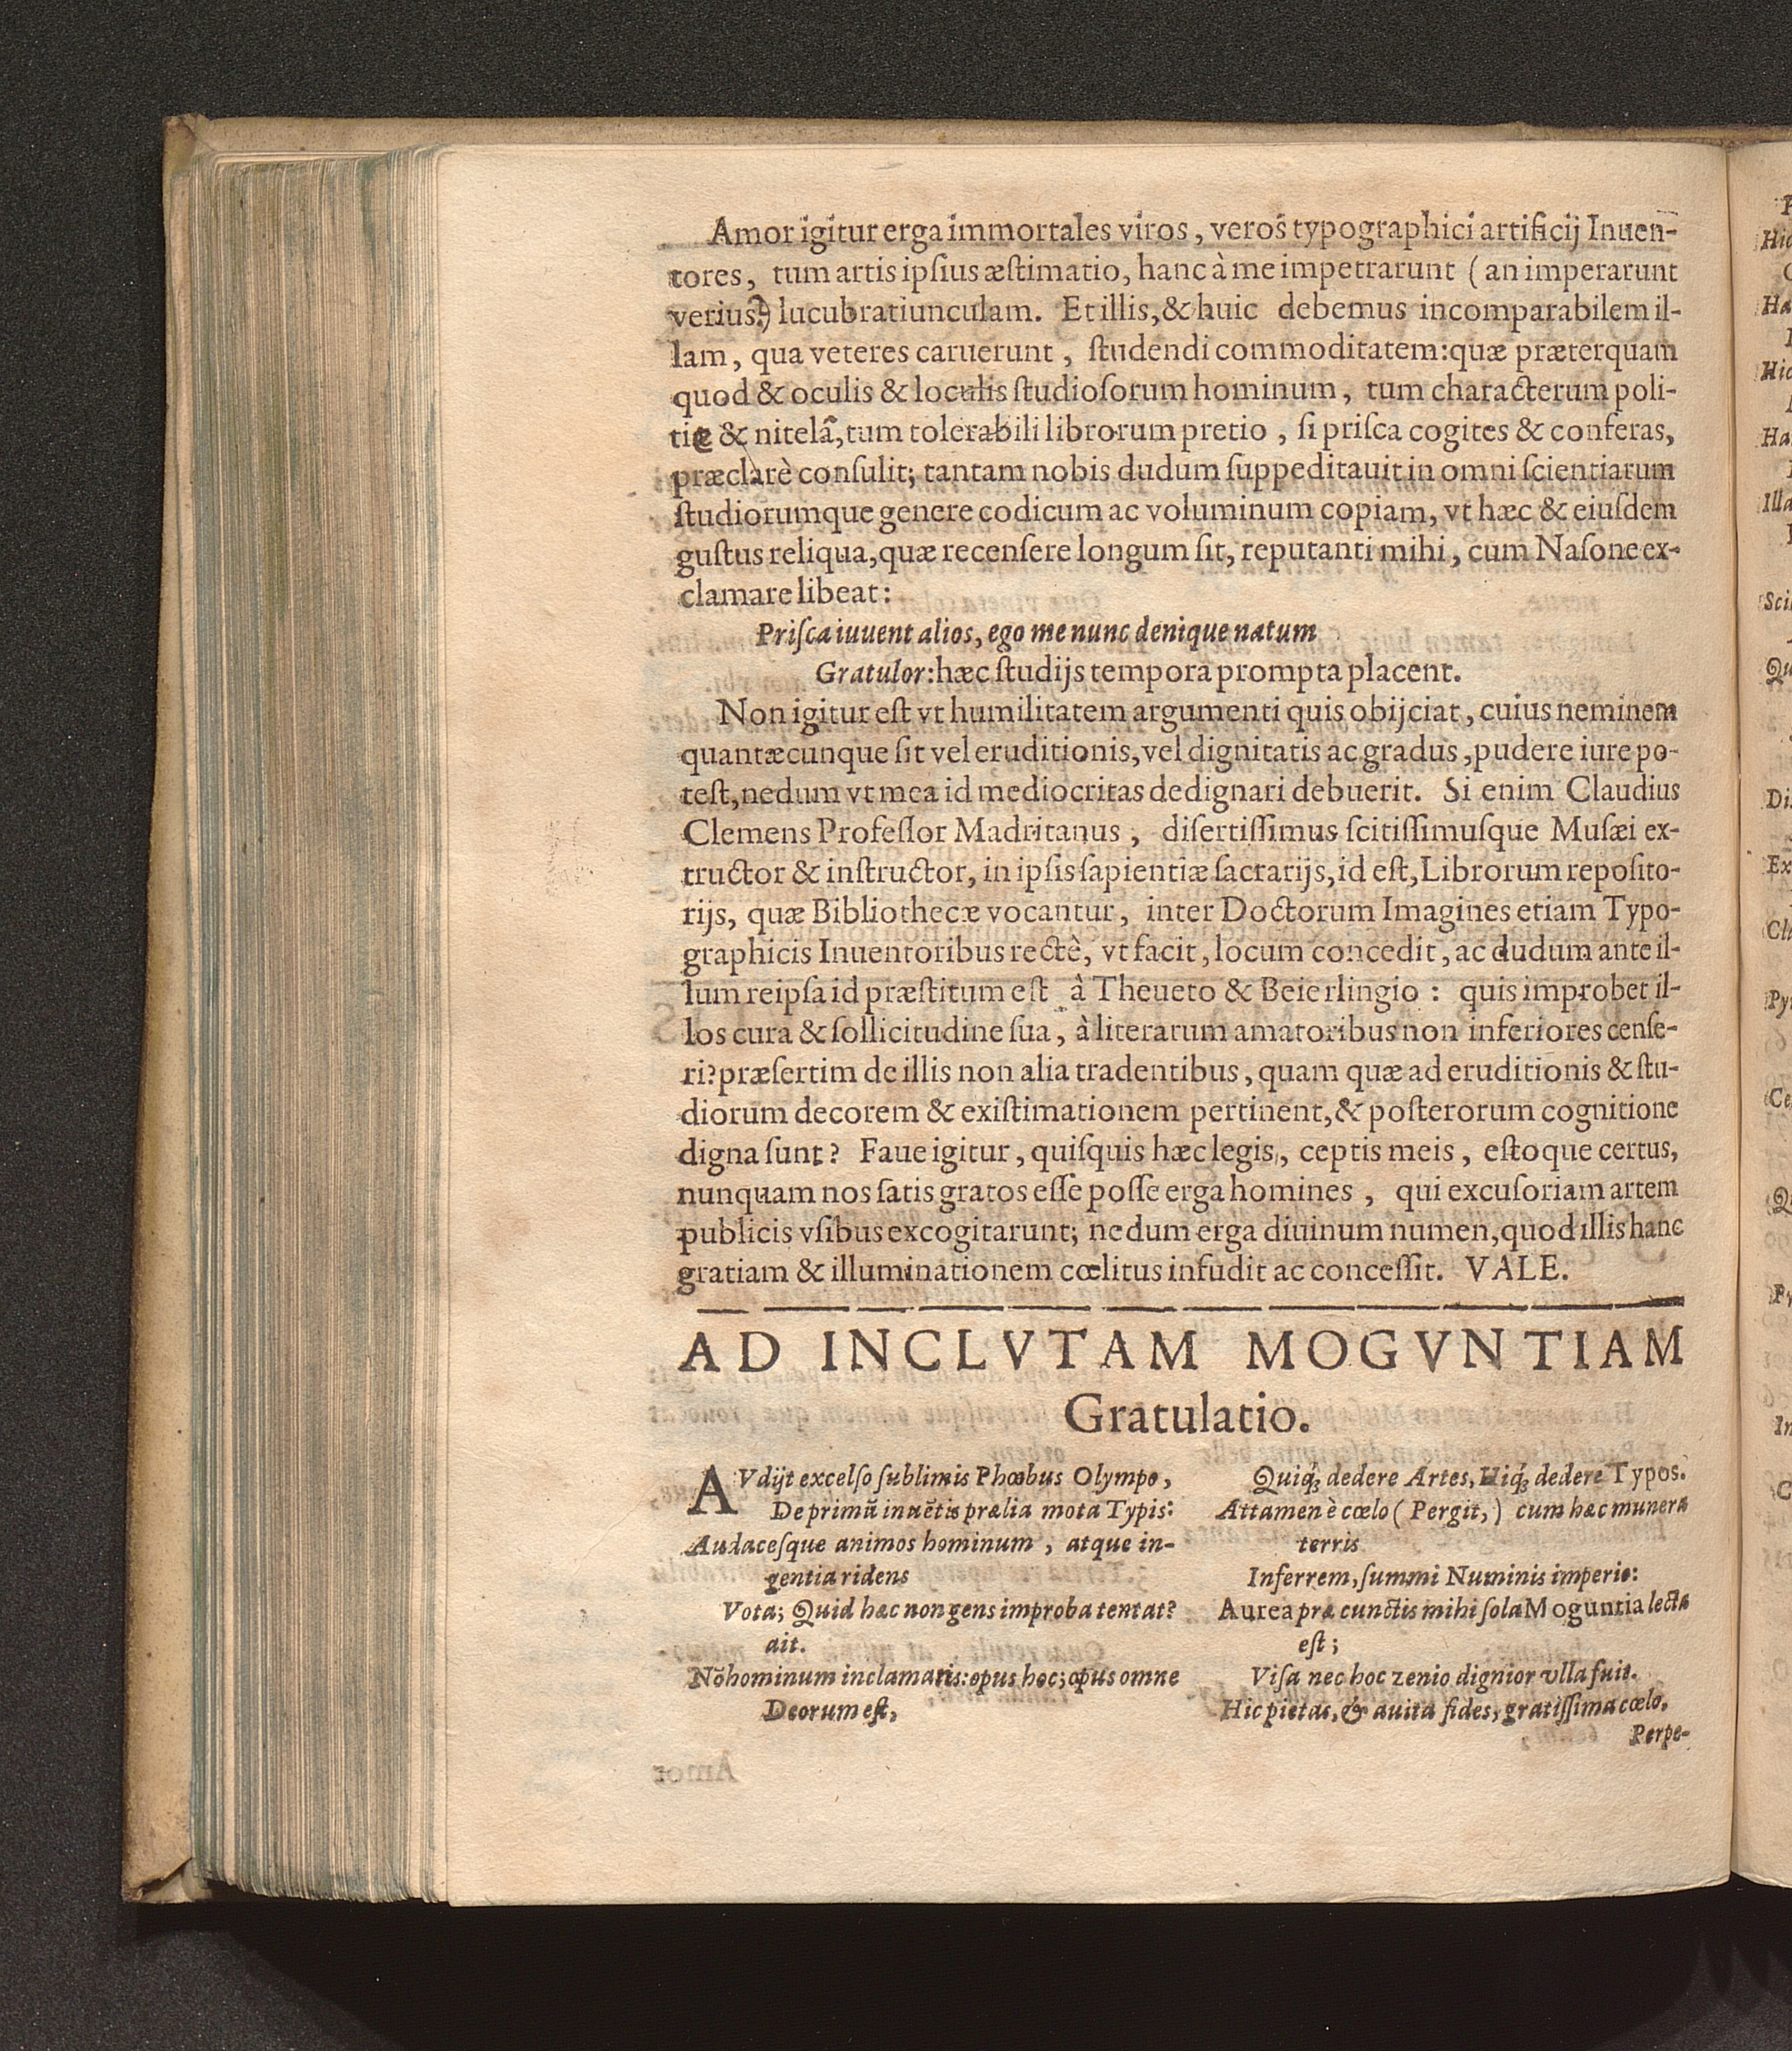 Amor igitur erga immortales viros, veros typographici artificij Inuen-
tores, tum artis ipsius æstimatio, hanc à me impetrarunt (an imperarunt
verius?) lucubratiunculam. Et illis, & huic debemus incomparabilem il-
lam, qua veteres caruerunt, studendi commoditatem: quæ præterquam
quod & oculis & loculis studiosorum hominum, tum characterum poli-
tie & nitelâ, tum tolerabili librorum pretio, si prisca cogites & conferas,
præclarè consulit; tantam nobis dudum suppeditauit in omni scientiarum
studiorumque genere codicum ac voluminum copiam, vt hæc & eiusdem
gustus reliqua, quæ recensere longum sit, reputanti mihi, cum Nasone ex-
clamare libeat:
Prisca iuuent alios, ego me nunc denique natum
Gratulor: hæc studijs tempora prompta placent.
Non igitur est vt humilitatem argumenti quis obijciat, cuius neminem
quantæcunque sit vel eruditionis, vel dignitatis ac gradus, pudere iure po-
test, nedum vt mea id mediocritas dedignari debuerit. Si enim Claudius
Clemens Professor Madritanus, disertissimus scitissimusque Musæi ex-
tructor & instructor, in ipsis sapientiæ sacrarijs, id est, Librorum reposito-
rijs, quæ Bibliothecæ vocantur, inter Doctorum Imagines etiam Typo-
graphicis Inuentoribus rectè, vt facit, locum concedit, ac dudum ante il-
lum reipsa id præstitum est à Theueto & Beierlingio: quis improbet il-
los cura & sollicitudine sua, à literarum amatoribus non inferiores cense-
ri? præsertim de illis non alia tradentibus, quam quæ ad eruditionis & stu-
diorum decorem & existimationem pertinent, & posterorum cognitione
digna sunt? Faue igitur, quisquis hæc legis, ceptis meis, estoque certus,
nunquam nos satis gratos esse posse erga homines, qui excusoriam artem
publicis vsibus excogitarunt; nedum erga diuinum numen, quod illis hanc
gratiam & illuminationem cœlitus infudit ac concessit. VALE.
AD INCLVTAM MOGVNTIAM
Gratulatio.
AVdijt excelso sublimis Phœbus Olympo,
De primũ inuẽtis prælia mota Typis:
Audacesque animos hominum, atque in-
gentia ridens
Vota; Quid hæc non gens improba tentat?
ait.
Nõ hominum inclamatis: opus hoc; opus omne
Deorum est,
Quiq́; dedere Artes, Hiq́; dedere Typos.
Attamen è cœlo (Pergit,) cum hæc munera
terris
Inferrem, summi Numinis imperio:
Aurea præ cunctis mihi sola Moguntia lecta
est;
Visa nec hoc zenio dignior vlla fuit.
Hic pietas, & auita fides, gratissima cœlo,
Perpe-